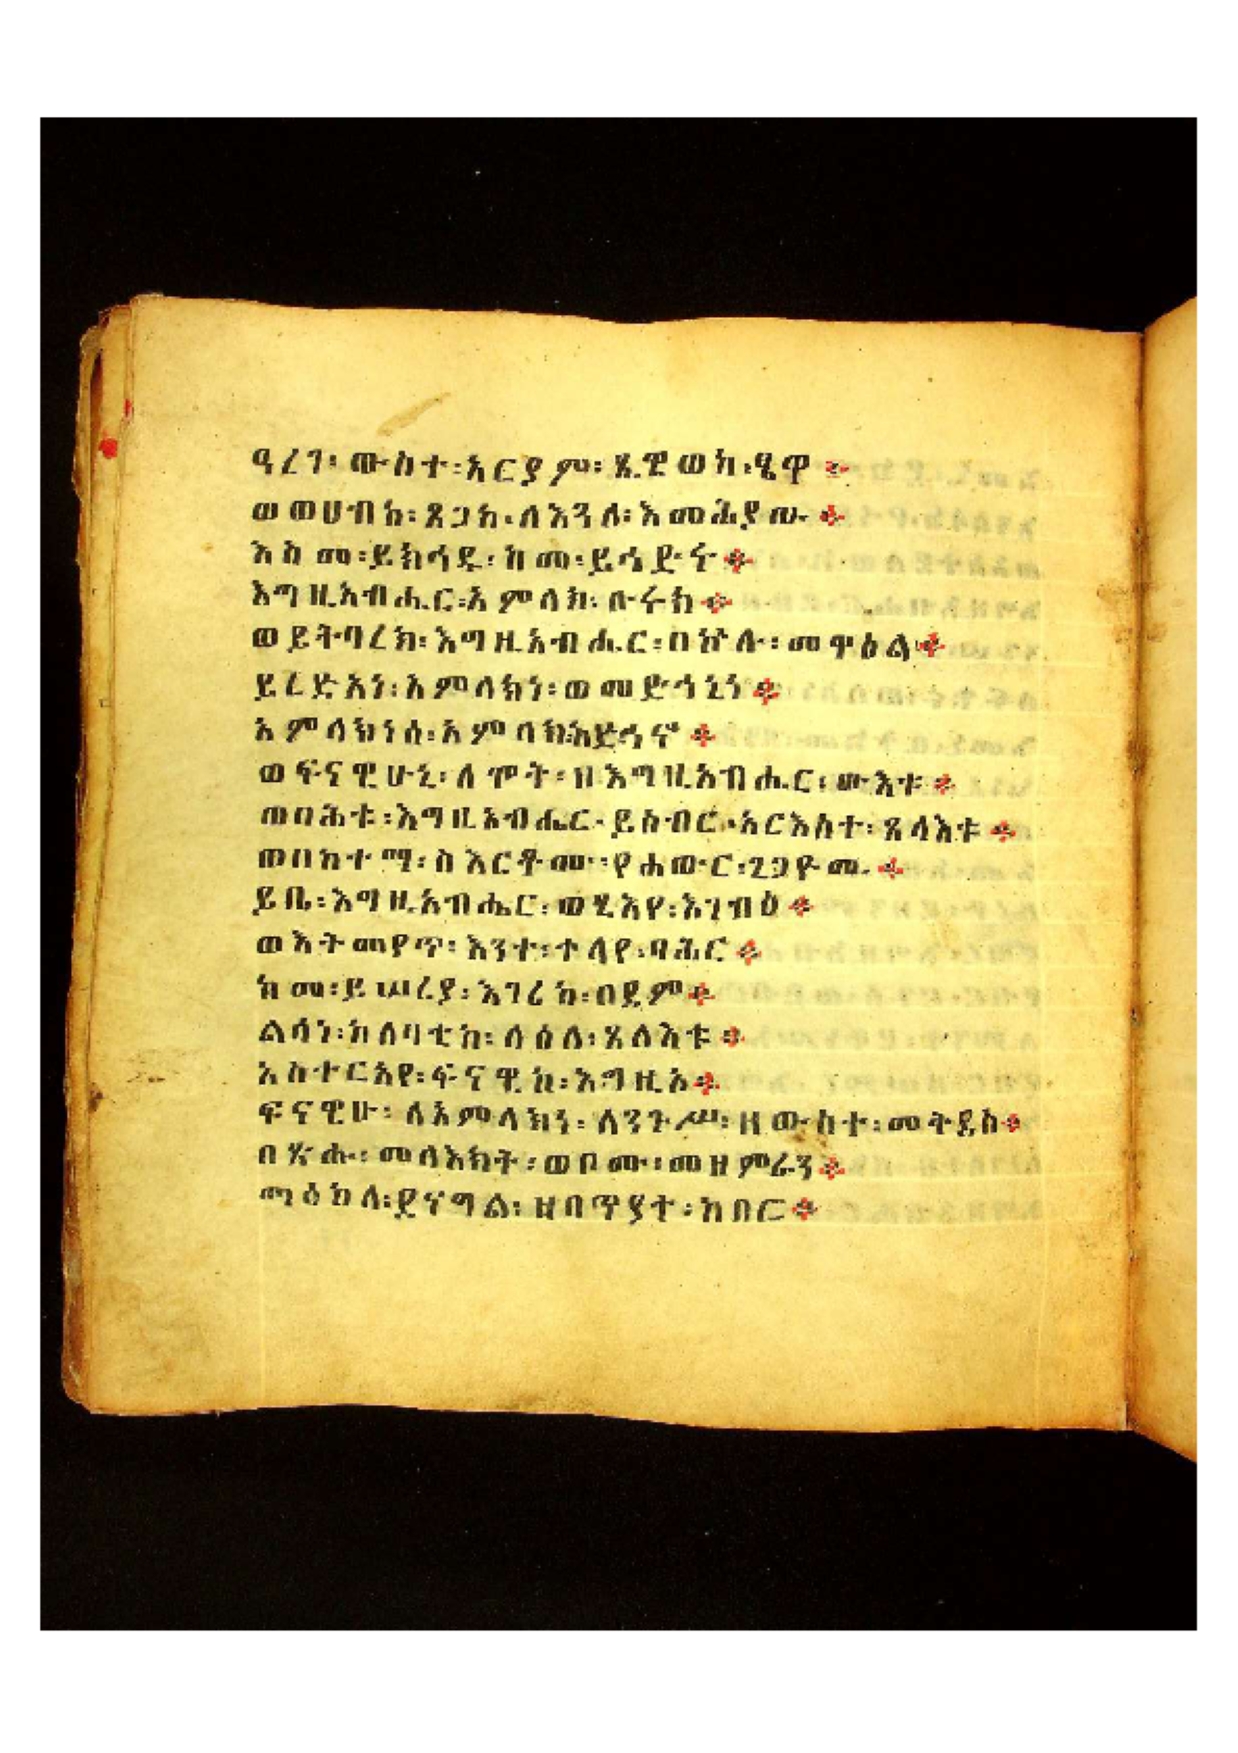 ዓረገ፡ ውስተ፡ አርያም፡ ጼዊወከ፡ ፄዋ ።
ወወሀብከ፡ ጸጋከ፡ ለእጓለ፡ እመሕያው ።
እስመ፡ ይክሕዱ፡ ከመ፡ ይኅድሩ ።
እግዚአብሔር፡ አምላክ፡ ቡሩክ ።
ወይትባረክ፡ እግዚአብሔር፡ በኵሉ፡ መዋዕል ።
ይረድአነ፡ አምላክነ፡ ወመድኅኒነ ።
አምላክነሰ፡ አምላከ፡ አድኅኖ ።
ወፍናዊሁኒ፡ ለሞት፡ ዘእግዚአብሔር፡ ውእቱ ።
ወባሕቱ፡ እግዚአብሔር፡ ይሰብር፡ አርእስተ፡ ጸላእቱ ።
ወበከተማ፡ ስእርቶሙ፡ የሐውር፡ ጌጋዮሙ ።
ይቤ፡ እግዚአብሔር፡ ወቂአየ፡ እገብዕ ።
ወእትመየጥ፡ እንተ፡ ተላየ፡ ባሕር ።
ከመ፡ ይሠረያ፡ እገሪከ፡ በደም ።
ልሳነ፡ ከለባቲከ፡ ላዕለ፡ ጸላእቱ ።
አስተርአየ፡ ፍናዊከ፡ እግዚኦ ።
ፍናዊሁ፡ ለአምላክነ፡ ለንጉሥ፡ ዘውስተ፡ መቅደስ ።
በጽሑ፡ መላእክት፡ ወቦሙ፡ መዘምራን ።
ማዕከለ፡ ደናግል፡ ዘበጥያተ፡ ከበሮ ።